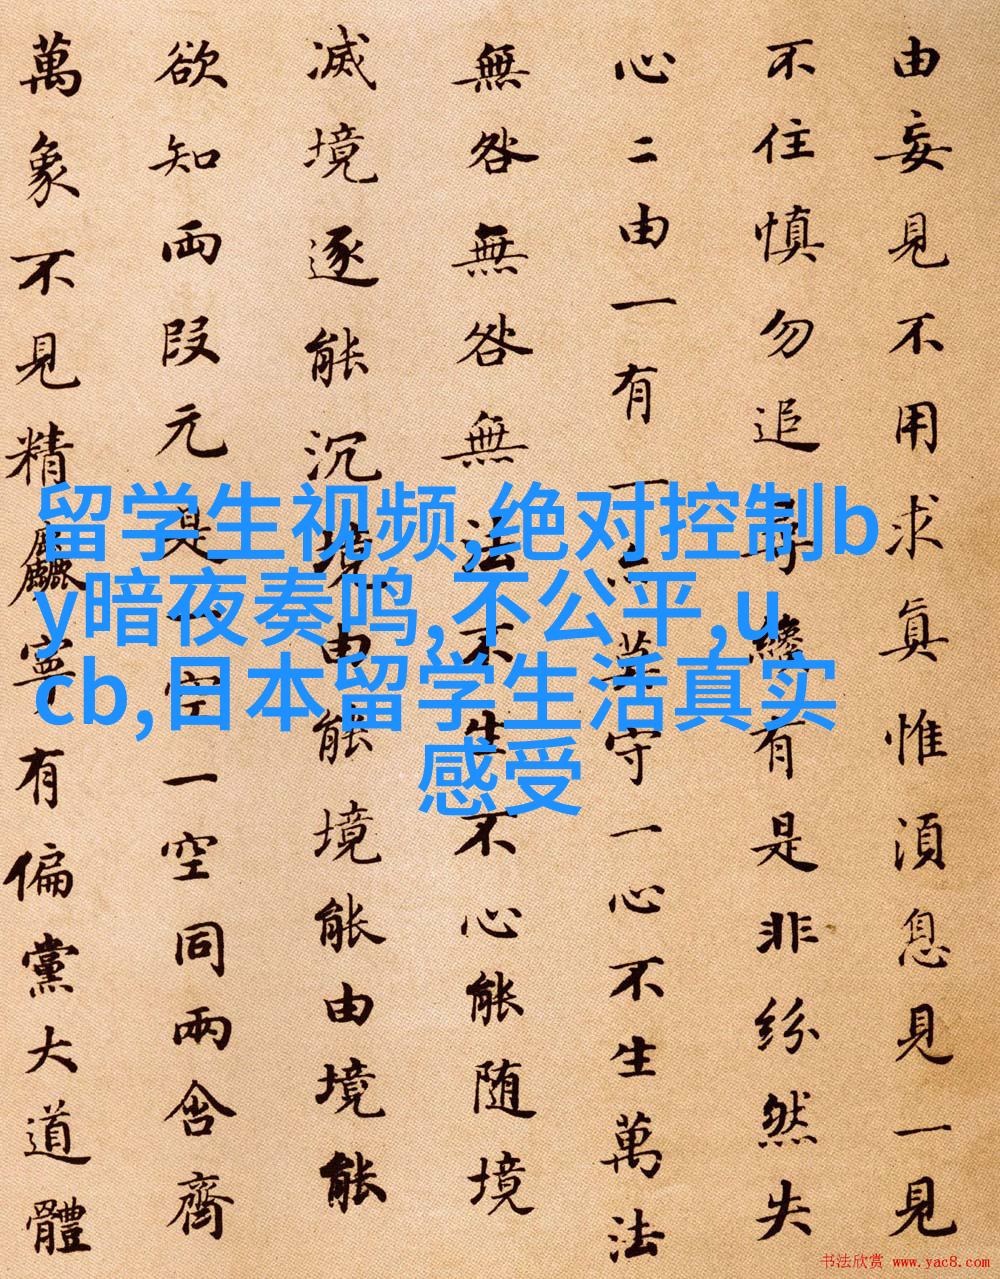 由妄見不用求真惟須息見一見
不住慎勿追尋纔有是非紛然失
心二由一有一心莫守一心不生萬法
無咎無咎無法不生不心能隨境
滅境逐能沉境由能境能由境能
欲知兩段元是一空一空同兩含齊
萬象不見精麤寧有偏黨大道體
留学生视频,绝对控制b
y暗夜奏鸣,不公平,u
cb,日本留学生活真实
感受
书法欣赏 www.yac8.com